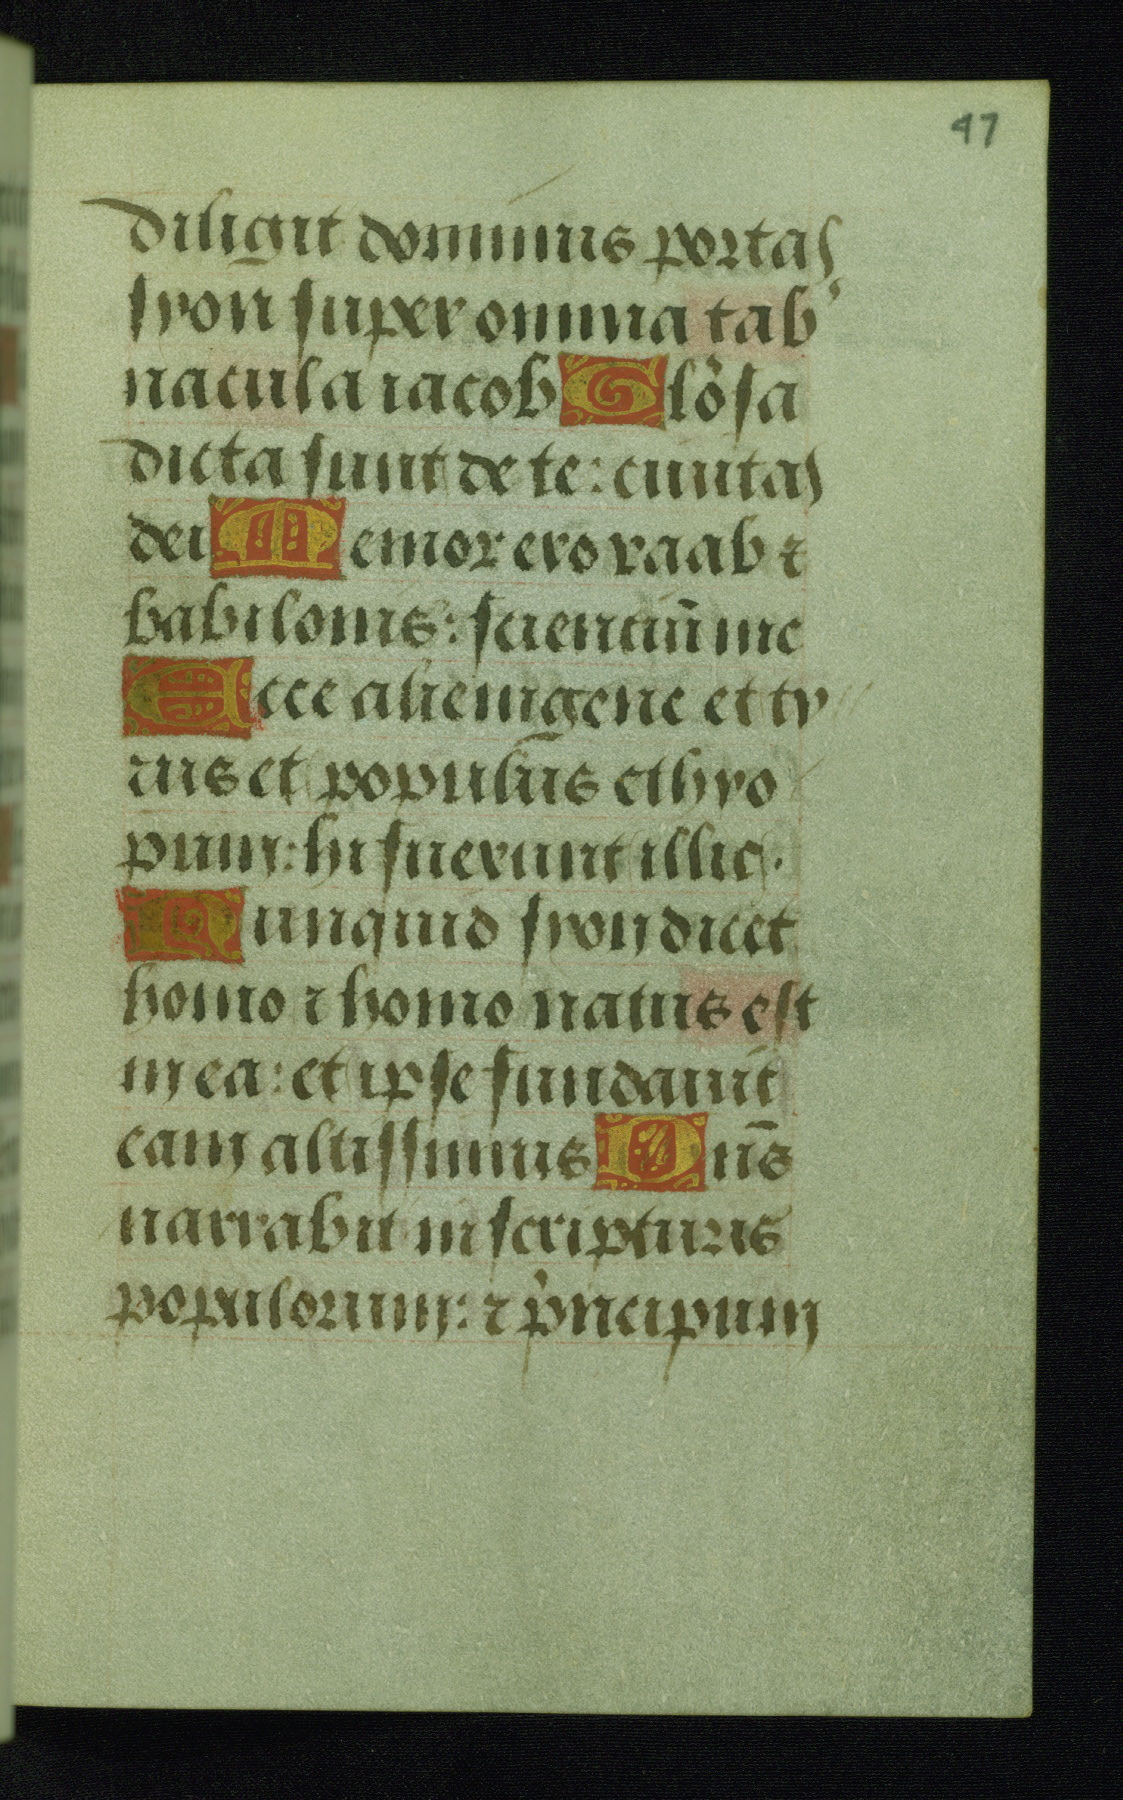 47
diligit dominus portas
syon super omnia tab'
nacula iacob Glo͛sa
dicta sunt de te: ciuitas
dei Memor ero raab ⁊
babilonis: scientiū me
Ecce alienigene et ty
rus et populus̄ ethyo
pum: hi fuerunt illic.
Nunquid syon dicet
homo ⁊ homo natus est
in ea: et ipse fundauit
eam altissimus Dn̄s
narrabit in scripturis
populorum: ⁊ pͥncipum